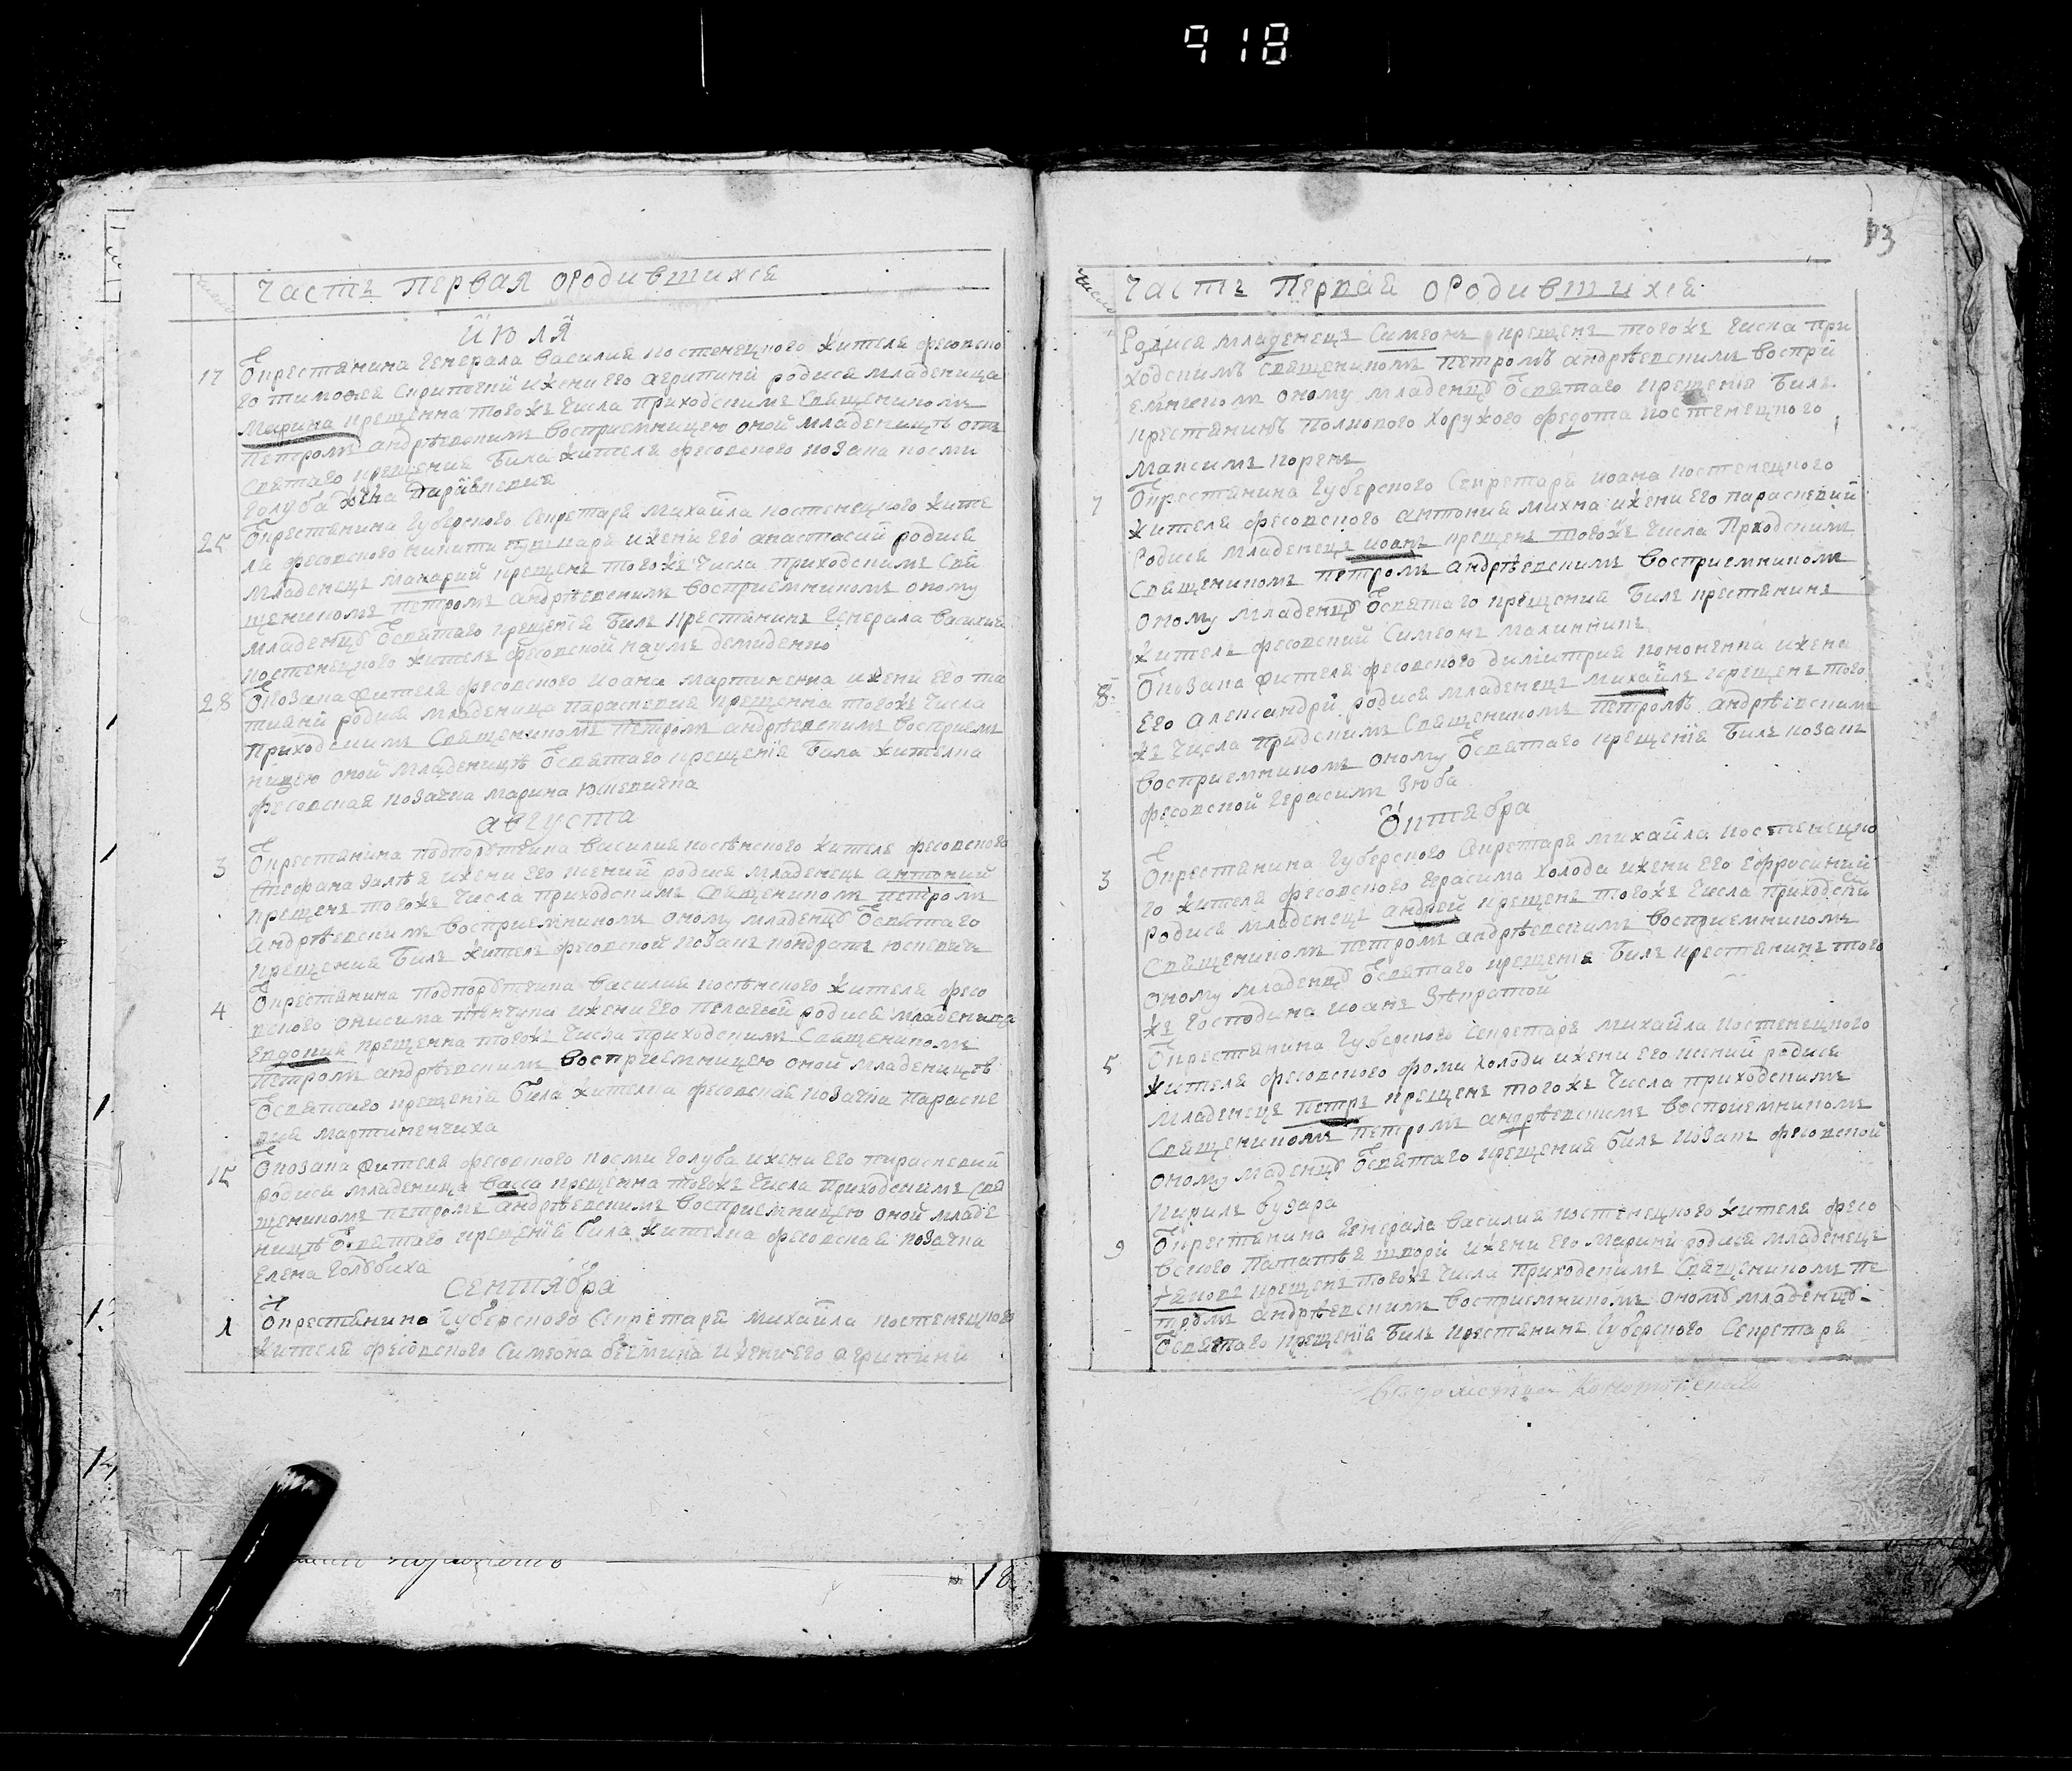 918
13
Часть Первая ородившихся
июля
17 Ѿкрестянина Генерала Василия костенецкого жителя фесовско
го тимофея Скрипочки ижени его агрипини родися младеница
Марина крещенна того же числа приходским Священиком
Петром андрѣевским восприемницею оной младеницѣ от
Святаго крещения Била жителя фесовского козака косми
голуба жена
25 Ѿкрестянина Губерского Секретаря Михайла костенецкого жите
ля фесовского никити пушкаря ижени его анастасий родися
младенец макарий крещен того же числа приходским Свя
щеником Петром андрѣевским восприемником оному
младенцу Ѿсвятаго крещения Бил крестянин Генерала Василия
костенецкого жител фесовской наум демиденко
28 Ѿкозака жителя фесовского иоана мартиненка ижени его та
тияни родися младеница параскевия крещенна того же числа
Приходским Священиком Петром андрѣевским восприем
ницею оной младеницѣ Ѿсвятаго крещения Била жителка
фесовская козачка марина Юскевичка
августа
3 Ѿкрестянина подпорутчика Василия жителя фесовского
Стефана ижени его ксений родися младенец антоний
крещен того же числа приходским Священиком Петром
андрѣевским восприемником оному младенцу Ѿсвятаго
крещения Бил жител фесовской козак кондрат Юскевич
4 Ѿкрестянина подпорутчика Василия жителя фесо
вского онисима ижени его Пелагий родися младеница
Евдокия крещенна того же числа приходским Священиком
Петром андрѣевским восприемницею оной младеницѣ
Ѿсвятаго крещения Била жителка фесовская козачка Параске
вия мартиненчиха
15 Ѿкозака жителя фесовского косми голуба ижени его параскевий
родися младеница васса крещенна того же числа приходским Свя
щеником петром андрѣевским восприемницею оной младе
ницѣ Ѿсвятаго крещения Била жителка фесовская козачка
Елена Голубиха
Сентября
1 Ѿкрестянина Губерского Секретаря михайла костенецкого
жителя фесовского Симеона ижени его агрипини
Часть Первая ородившихся
Родися младенец Симеон крещен того же числа при
ходским священиком петром андрѣевским воспри
емником оному младенцу Ѿсвятаго крещения Бил
крестянин Полкового хоружого федота костенецкого
Максим корен
7 Ѿкрестянина Губерского Секретаря иоана костенецкого
жителя фесовского антония михна ижени его параскевий
Родися младенец иоан крещен того же числа Приходским
Священиком петром андрѣевским восприемником
оному младенцу Ѿсвятаго крещения Бил крестянин
жител фесовский Симеон малинник
8 Ѿкозака жителя фесовского димитрия кононенка ижена
Его александри родися младенец михайл крещен того
же числа придским Священиком Петром андрѣевским
восприемником оному Ѿсвятаго крещения Бил козак
фесовской Герасим Зюба
Октября
3 Ѿкрестянина Губерского Секретаря михайла костенецко
го жителя фесовского Герасима холоди ижени его Ефросиний
родися младенец андрей крещен того же числа приходски
Священиком петром андрѣевским восприемником
оному младенцу Ѿсвятаго крещения Бил крестянин того
же Господина иоан
5 Ѿкрестянина Губерского Секретаря михайла костенецкого
жителя фесовского фоми холоди ижени его ксений родися
младенец Петр крещен того же числа приходским
Священиком петром андрѣевским восприемником
оному маденцу Ѿсвятаго крещения бил козак фесовской
кирил бузара
9 Ѿкрестянина Генерала василия костенецкого жителя фесо
вского ижени его марини родися младенец
крещен того же числа приходским Священиком пе
тром андрѣевским восприемником оному младенцу
Ѿсвятаго крещения Бил крестянин Губерского Секретаря
18